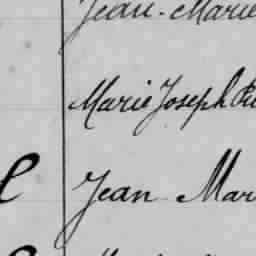 Jean-Marie
Marie Joseph
Jean Mar